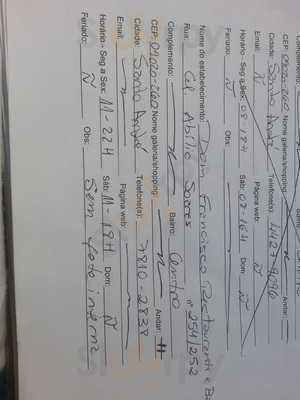 CEP: 09020-260 Nome galeria/shopping: Andar:
Cidade: Santo André Telefone(s): 4427-9096
Email: Ñ Página web: Ñ
Horário - Seg a Sex: 08-18H Sáb: 07-16H Dom: Ñ
Feriado: Ñ Obs:
Nome do estabelecimento: Dom Francisco Restaurante e
Rua: Cel Abílio Soares nº 254/252
Complemento: Bairro: Centro
CEP: 09020-260 Nome galeria/shopping: Andar:
Cidade: Santo André Telefone(s): 7810-2838
Email: Página web:
Horário - Seg a Sex: 11-22H Sáb: 11-18H Dom: Ñ
Feriado: Ñ Obs: Sem foto interna